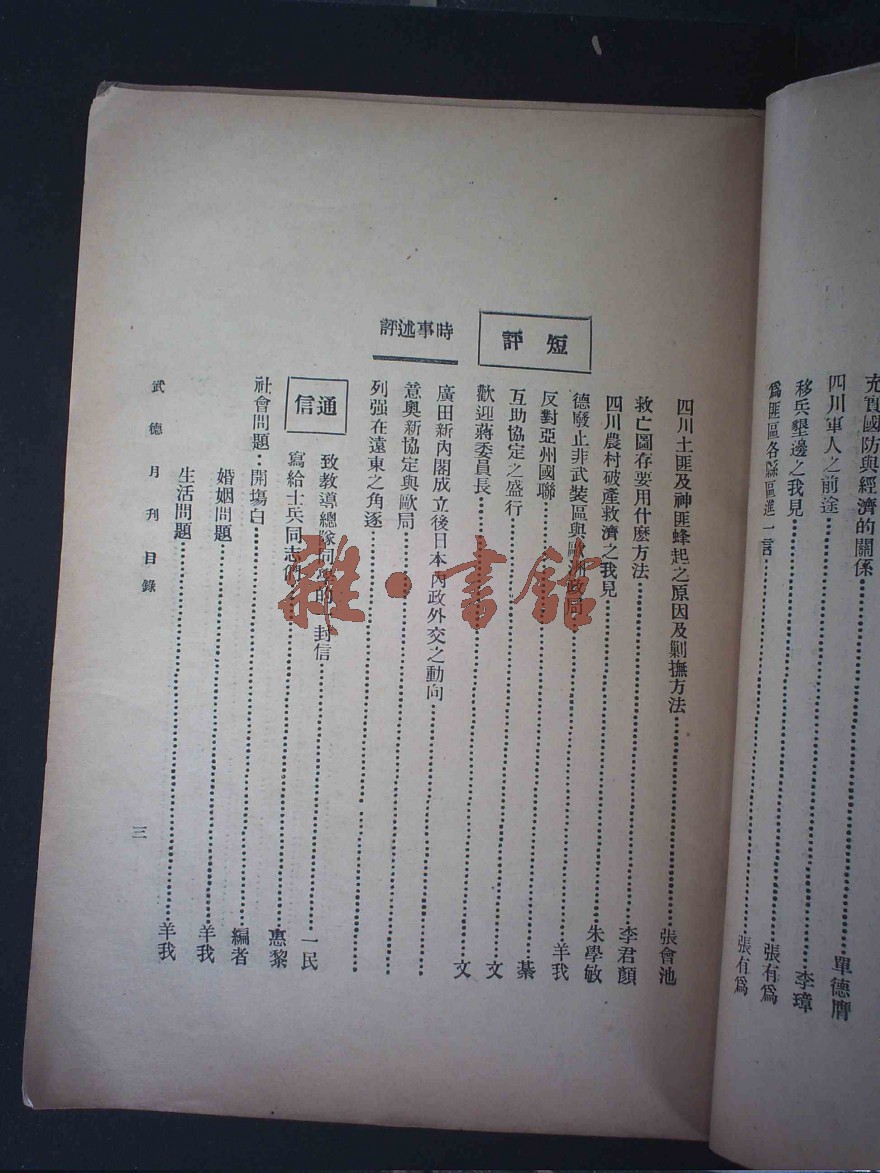 充實國防與經濟的關係
單德膺
四川軍人之前途
李璋
移兵墾邊之我見
張有爲
爲匪區各縣區進一言
張有爲
四川土匪及神匪蜂起之原因及剿撫方法
張會池
救亡圖存要用什麼方法
李君顏
四川農村破產救濟之我見
朱學敏
短評
德廢止非武裝區與歐洲政局
羊我
反對亞州國聯
蓁
互助協定之盛行
文
歡迎蔣委員長
文
時事述評
廣田新內閣成立後日本內政外交之動向
意奧新協定與歐局
列强在遠東之角逐
通信
致教導總隊同學的一封信
一民
寫給士兵同志們
惠黎
社會問題：開塲白
編者
婚姻問題
羊我
生活問題
羊我
武德月刊目錄
三
雜·書館